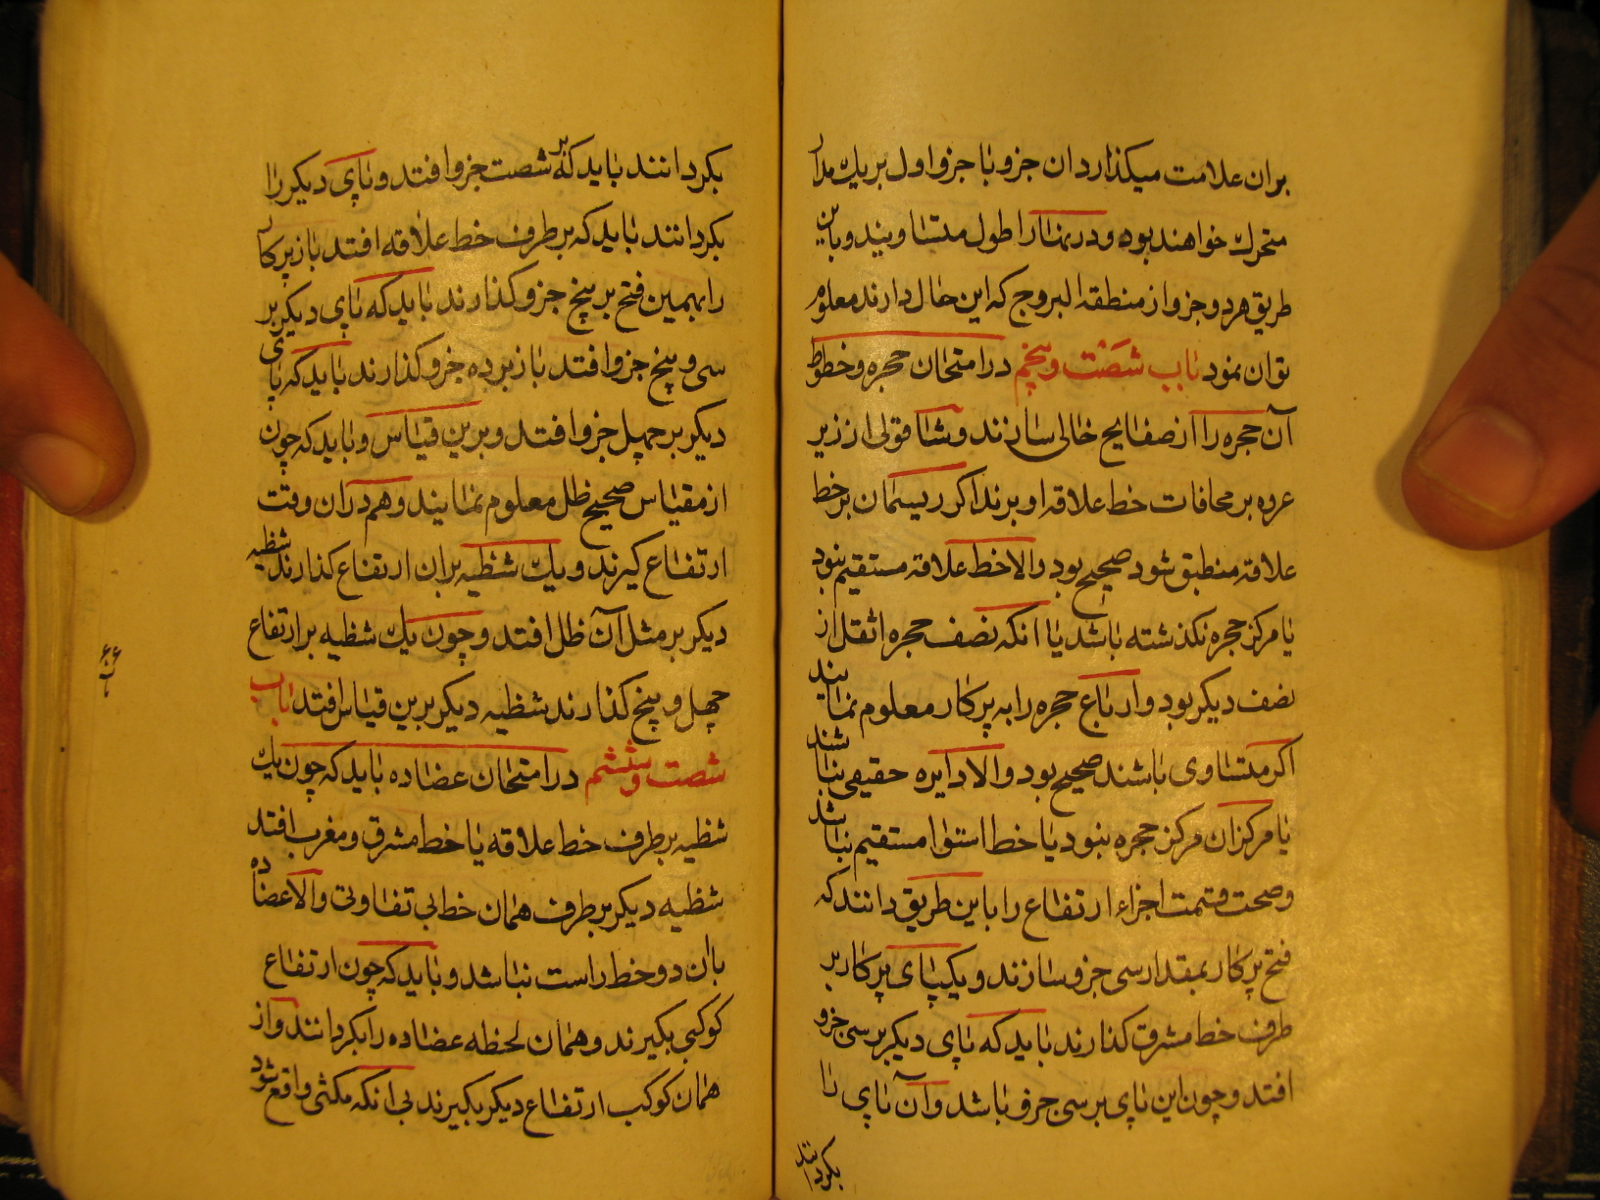 بران علامت میکذارد ان جزو با جزو اول بر یك مدار
متحرك خواهند بود و در نهار اطول متساویند و باین
طریق هر دو جزو از منطقه البروج که این حال دارند معلوم
توان نمود باب شصت و پنجم در امتحان حجره و خطوط
آن حجره را از صفایح خالی سازند و شاقولی از زیر
عروه بر محاذات خط علاقه اویزند اکر ریسمان بر خط
علاقه منطبق شود صحیح بود والا خط علاقه مستقیم نبود
یا مرکز حجره نکذشته باشد یا انکه نصف حجره اثقل از
نصف دیکر بود و ارباع حجره را به پرکار معلوم نمایند
اکر متساوی باشند صحیح بود والا دایره حقیقی نباشند
یا مرکز ان مرکز حجره نبود یا خط استوا مستقیم نباشد
و صحت قسمت اجزاء ارتفاع را باین طریق دانند که
فتح پرکار بمقدار سی جزو سازند و یکپای پرکار بر
طرف خط مشرق کذارند باید که پای دیکر بر سی جزو
افتد و چون این پای بر سی جزو باشد و آن پای را
بکردانند
بکردانند باید که بر شصت جزو افتد و پای دیکر را
بکردانند باید که بر طرف خط علاقه افتد باز پرکار
را بهمین فتح بر پنج جزو کذارند باید که پای دیکر بر
سی و پنج جزو افتد باز بر ده جزو کذارند باید که پای
دیکر بر چهل جزو افتد و برین قیاس و باید که چون
از مقیاس صحیح ظل معلوم نمایند و هم در ان وقت
ارتفاع کیرند و یك شظیه بران ارتفاع کذارند شظیه
دیکر بر مثل آن ظل افتد و چون یك شظیه بر ارتفاع
چهل و پنج کذارند شظیه دیکر برین قیاس افتد باب
شصت و ششم در امتحان عضاده باید که چون یك
شظیه بر طرف خط علاقه یا خط مشرق و مغرب افتد
شظیه دیکر بر طرف همان خط بی تفاوتی والا عضاده
بان دو خط راست نباشد و باید که چون ارتفاع
کوکبی بکیرند و همان لحظه عضاده را بکردانند و از
همان کوکب ارتفاع دیکر بکیرند بی انکه مکثی واقع شود